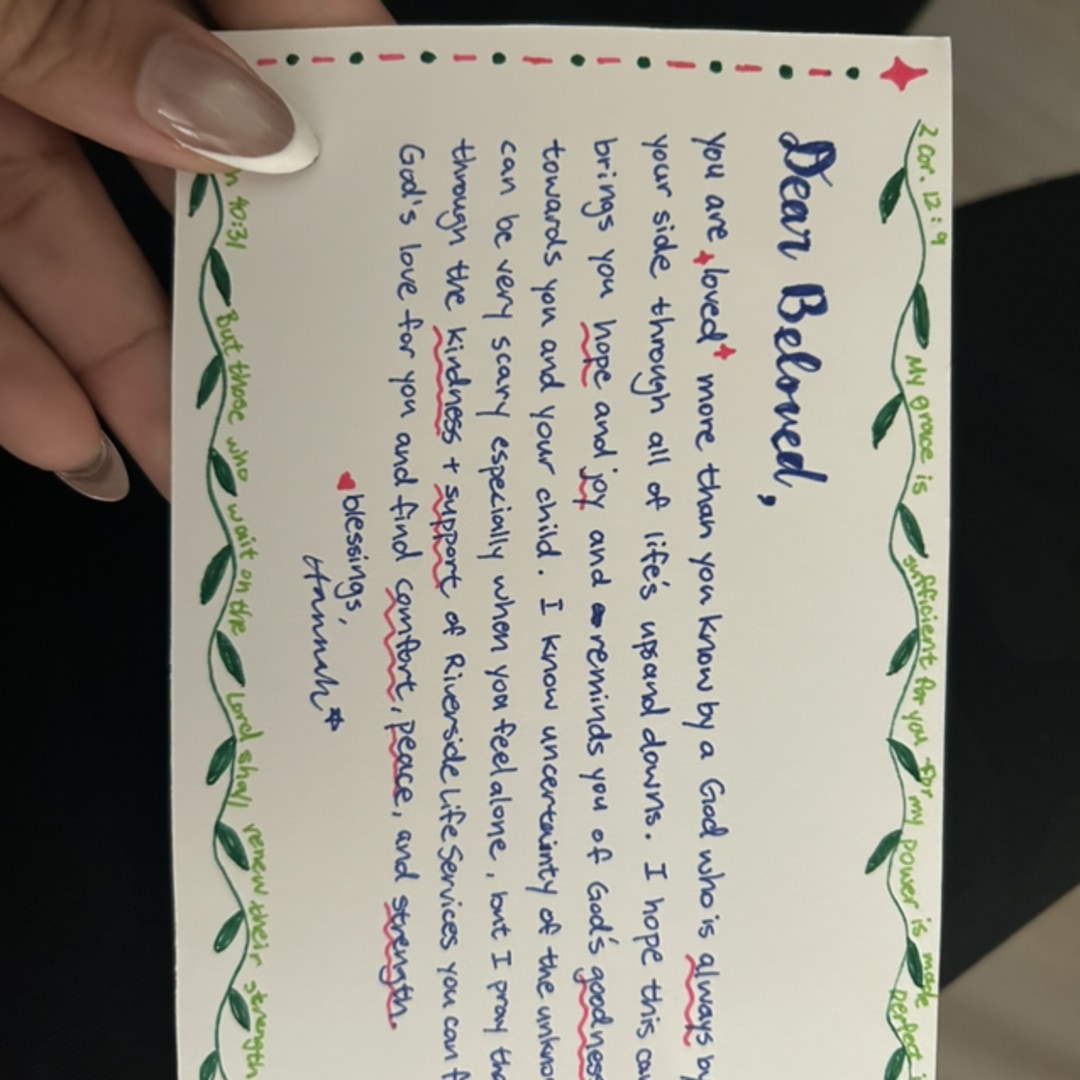 2 Cor. 12:9 My grace is sufficient for you for my power is made perfect
Dear Beloved,
you are loved more than you know by a God who is always by
your side through all of life's ups and downs. I hope this
brings you hope and joy and reminds you of God's goodness
towards you and your child. I know uncertainty of the
can be very scary especially when you feel alone, but I pray
through the kindness + support of Riverside Life Services you can
God's love for you and find comfort, peace, and strength.
blessings,
Hannah
40:31 But those who wait on the Lord shall renew their strength